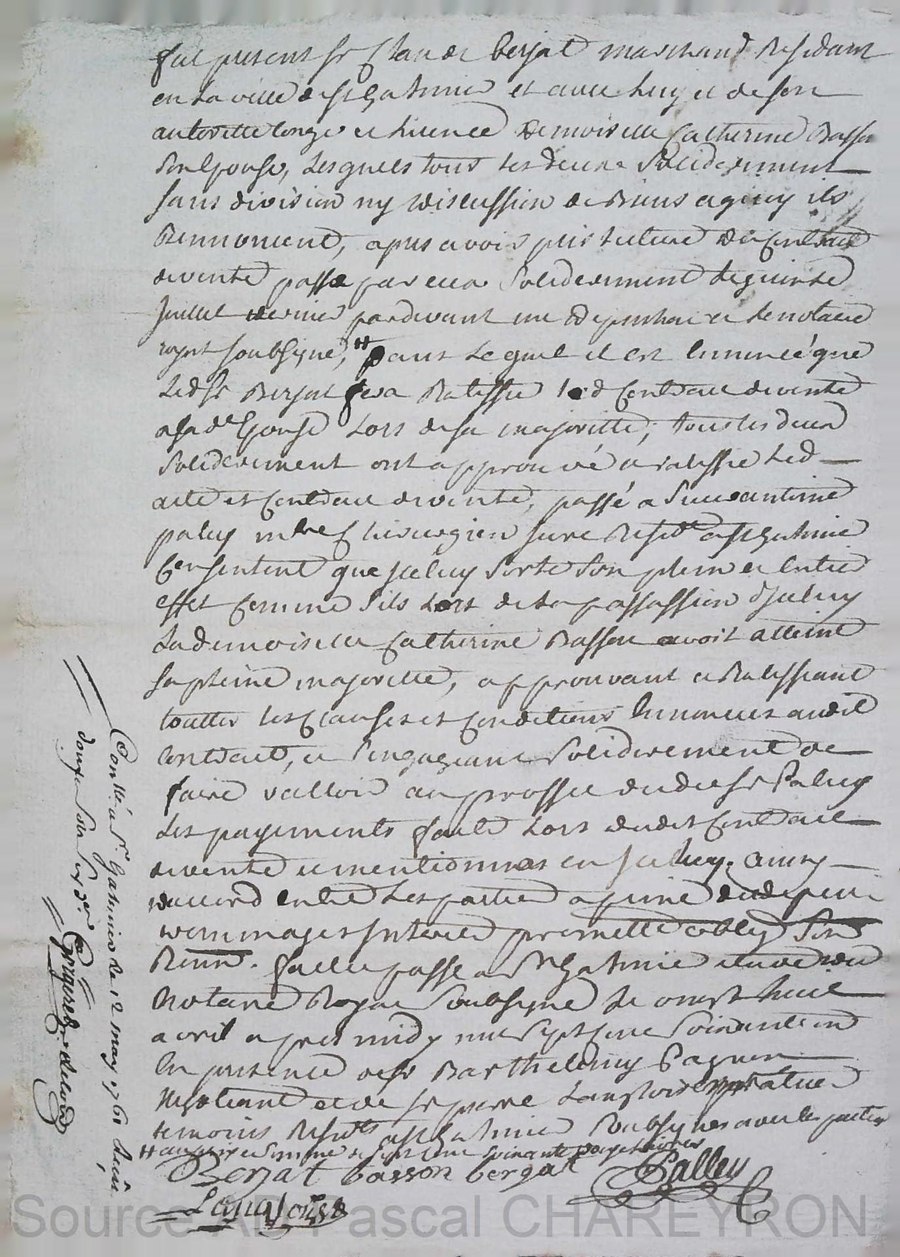 fut present sr Claude Berjat marchand Residant
en la ville de st Galmier et avec luy et de son
autoritte conge et licence Demoiselle Catherine Basson
Son Epouse, Lesquels tous les deux Solidairement
sans division ny discussion de Biens a quoy ils
Rennoncent, apres avoir pris lecture du Contract
de vente passé par eux Solidairement le quinze
Juillet dernier pardevant me et le notaire
royal soubsigné, # dans Lequel il est ennoncé que
Led sr Berjat fera Ratiffier led Contract de vente
a sa de Epouse Lors de sa majoritté, tous les deux
Solidairement ont approuvé et ratiffié Led
acte et Contract de vente, passé a sieur antoine
paley mtre Chirurgien juré Residt a st Galmier
Consentent que jceluy sorte son plein et Entier
effet Comme sils Lors de la passassion d'jceluy
La demoiselle Catherine Basson avoit atteint
sa pleine majoritté, approuvant et Ratiffiant
touttes les Clauses et Conditions Ennoncées audit
Contract, et s'engageant Solidairement de
faire valloir au proffit dudit sr Paley
Les payements faits Lors dudit Contract
de vente et mentionnés en jceluy. ainsy
daccord entre Les parties a peine de depens
dommages jnterets promettent obligent
Renn. fait et passé a st Galmier Etude du
Notaire Royal Soubsigné Le onze
avril apres midy mil sept cent soixante un
En presence de sr Barthelemy Pagnon
Negotiant et de sr pierre Langlois praticien
temoins Residts a st Galmier soubsignés avec les parties
# au prix et somme de sept cent soixante
Berjat basson bergat
Palley
Langlois
Conllé a St Galmier le 12 may 1761 Reçu
douze sols six drs